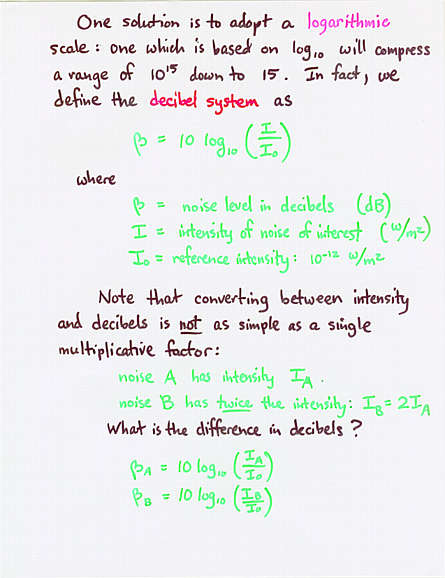 One solution is to adopt a logarithmic
scale: one which is based on log₁₀ will compress
a range of 10¹⁵ down to 15. In fact, we
define the decibel system as
β = 10 log₁₀ (I/I₀)
where
β = noise level in decibels (dB)
I = intensity of noise of interest (W/m²)
I₀ = reference intensity: 10⁻¹² W/m²
Note that converting between intensity
and decibels is not as simple as a single
multiplicative factor:
noise A has intensity I_A.
noise B has twice the intensity: I_B = 2I_A
What is the difference in decibels?
β_A = 10 log₁₀ (I_A/I₀)
β_B = 10 log₁₀ (I_B/I₀)